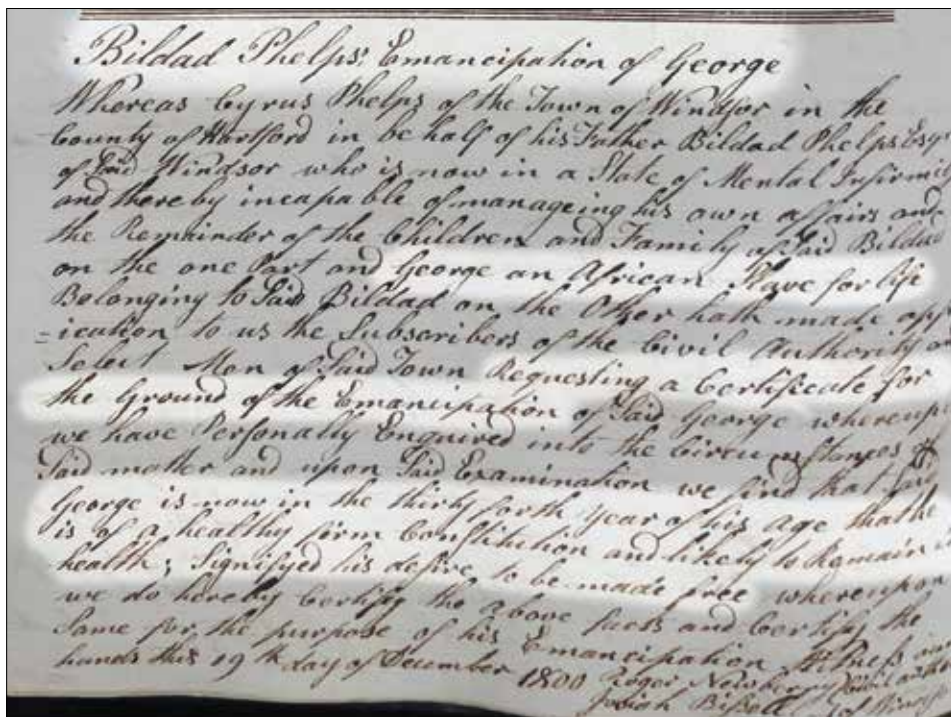 Bildad Phelps' Emancipation of George
Whereas Cyrus Phelps of the Town of Windsor in the
County of Hartford in be half of his Father Bildad Phelps Esqr
of Said Windsor who is now in a State of Mental Infirmity
and thereby incapable of manageing his own affairs and
the Remainder of the Children and Family of Said Bildad
on the one Part and George an African Slave for life
Belonging to Said Bildad on the Other hath made app
-ication to us the Subscribers of the Civil Authority an
Select Men of Said Town Requesting a Certificate for
the Ground of the Emancipation of Said George whereup
we have Personally Enquired into the Circumstances of
Said matter and upon Said Examination we find that Said
George is now in the thirty forth Year of his Age that he
is of a healthy firm Constitution and likely to Remain in
health; Signifyed his desire to be made free whereupon
we do hereby Certify the above facts and Certify the
Same for the purpose of his Emancipation Witness our
hands this 19th day of December 1800 Roger Newberry Civil
Josiah Bissell of